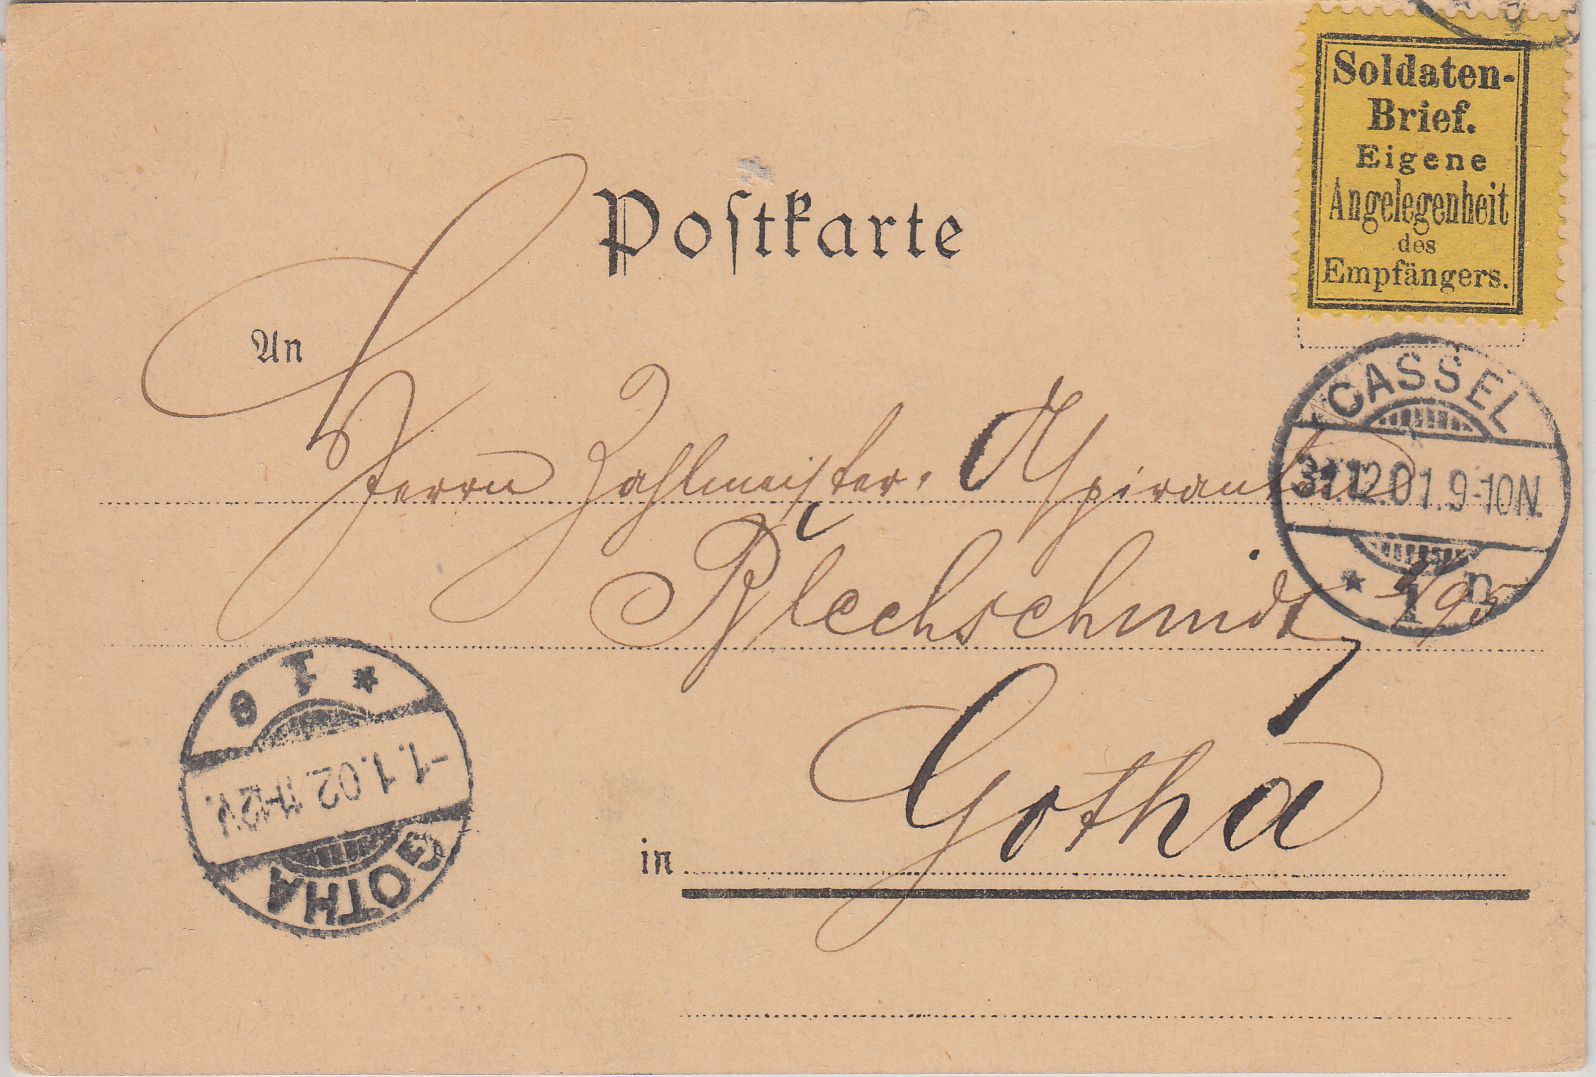 Soldaten-
Brief.
Eigene
Angelegenheit
des
Empfängers.
Postkarte
An
Herrn Zahlmeister-Aspirant
Blechschmidt
in Gotha
CASSEL
31.12.01.9-10N.
* 1 n
* 1 e
-1.1.02.11-12V.
GOTHA